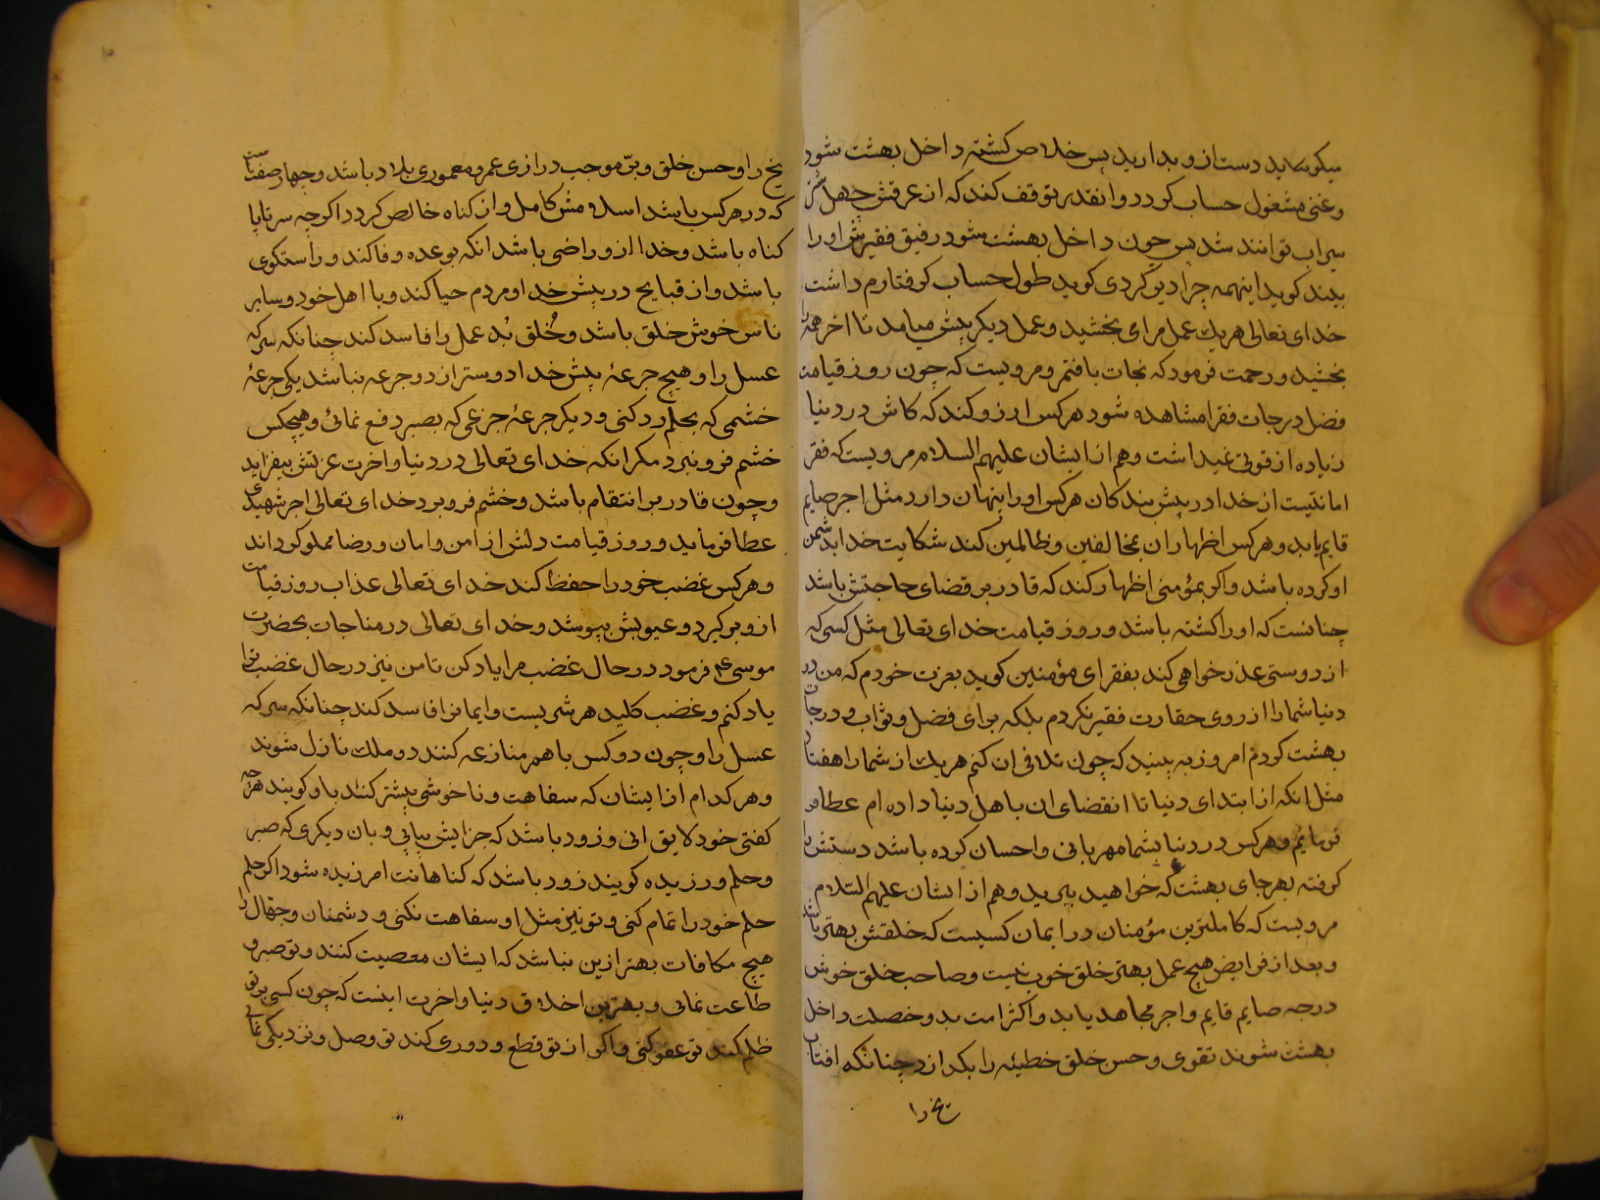 میکوید دست از و بدارید پس خلاص کشته داخل بهشت شود
و غنی مشغول حساب کردد و انقدر توقف کند که از عرقش چهل شتر
سیراب توانند شد پس چون داخل بهشت شود رفیق فقیرش او را
بیند کوید اینهمه چرا دیر کردی کوید طول حساب کرفتارم داشت
خدای تعالی هر یك عمل مرا می بخشید و عمل دیکر پیش میامد تا اخر همه را
بخشید و رحمت فرمود که نجات یافتم و مرویست که چون روز قیامت
فضل درجات فقرا مشاهده شود هر کس ارزو کند که کاش در دنیا
زیاده از قوتی نمیداشت و هم از ایشان علیهم السلام مرویست که فقر
امانتیست از خدا در پیش بندکان هر کس او را پنهان دارد مثل اجر صایم
قایم یابد و هر کس اظهار ان بمخالفین و ظالمین کند شکایت خدا بدشمن
او کرده باشد و اکر بمؤمنی اظهار کند که قادر بر قضای حاجتش باشد
چنانست که او را کشته باشد و روز قیامت خدای تعالی مثل کسی که
از دوستی عذر خواهی کند بفقرای مؤمنین کوید بعزت خودم که من در
دنیا شما را از روی حقارت فقیر نکردم بلکه برای فضل و ثواب و درجات
بهشت کردم امروز به بینید که چون تلافی ان کنم هر یك از شما را هفتاد
مثل انکه از ابتدای دنیا تا انقضای ان باهل دنیا داده ام عطا
فرمایم و هر کس در دنیا بشما مهربانی و احسان کرده باشد دستش را
کرفته بهر جای بهشت که خواهید ببرید و هم از ایشان علیهم السلام
مرویست که کاملترین مؤمنان در ایمان کسیست که خلقش بهتر باشد
و بعد از فرایض هیچ عمل بهتر خلق خوب نیست و صاحب خلق خوش
درجه صایم قایم و اجر مجاهد یابد و اکثر امت بدو خصلت داخل
بهشت شوند تقوی و حسن خلق خطیئه را بکدازد چنانکه افتاب
یخ را
یخ را و حسن خلق و برّ موجب درازی عمر و معموری بلاد باشد و چهار صفتست
که در هر کس باشد اسلامش کامل و از کناه خالص کردد اکرچه سر تا پا
کناه باشد و خدا از و راضی باشد انکه بوعده وفا کند و راستکوی
باشد و از قبایح در پیش خدا و مردم حیا کند و با اهل خود و سایر
ناس خوش خلق باشد و خُلق بُد عمل را فاسد کند چنانکه سرکه
عسل را و هیچ جرعهٔ پیش خدا دوستر از دو جرعه نباشد یکی جرعهٔ
خشمی که بحلم رد کنی و دیکر جرعهٔ جزعی که بصبر دفع نمائی و هیچکس
خشم فرو نبرد مکر انکه خدای تعالی در دنیا و اخرت عزتش بیفزاید
و چون قادر بر انتقام باشد و خشم فرو برد خدای تعالی اجر شهیدی
عطا فرماید و روز قیامت دلش از امن و امان و رضا مملو کرداند
و هر کس غضب خود را حفظ کند خدای تعالی عذاب روز قیامت
از و بر کیرد و عیوبش بپوشد و خدای تعالی در مناجات بحضرت
موسی ع فرمود در حال غضب مرا یاد کن تا من نیز در حال غضب ترا
یاد کنم و غضب کلید هر شریست و ایمانرا فاسد کند چنانکه سرکه
عسل را و چون دو کس با هم منازعه کنند دو ملك نازل شوند
و هر کدام از ایشان که سفاهت و ناخوشی بیشتر کند باو کویند هر چه
کفتی خود لایق انی و زود باشد که جزایش بیابی و بان دیکری که صبر
و حلم ورزیده کویند زود باشد که کناهانت امرزیده شود اکر حلم
حلم خود را تمام کنی و تو نیز مثل او سفاهت نکنی و دشمنان و جهال را
هیچ مکافات بهتر ازین نباشد که ایشان معصیت کنند و تو صبر و
طاعت نمائی و بهترین اخلاق دنیا و اخرت اینست که چون کسی بر تو
ظلم کند تو عفو کنی و اکر از تو قطع و دوری کند تو وصل و نزدیکی نمائی